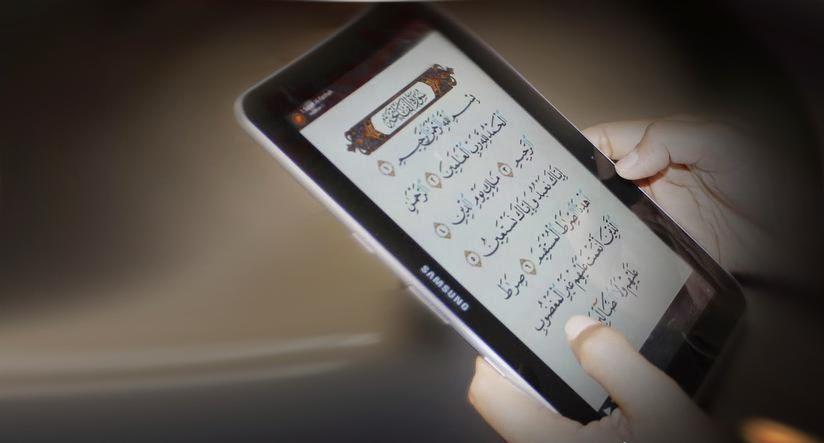 سُورَةُ الْفَاتِحَةِ
بِسْمِ اللَّهِ الرَّحْمَٰنِ الرَّحِيمِ ١
الْحَمْدُ لِلَّهِ رَبِّ الْعَٰلَمِينَ ٢ الرَّحْمَٰنِ
الرَّحِيمِ ٣ مَٰلِكِ يَوْمِ الدِّينِ ٤
إِيَّاكَ نَعْبُدُ وَإِيَّاكَ نَسْتَعِينُ ٥
اهْدِنَا الصِّرَٰطَ الْمُسْتَقِيمَ ٦ صِرَٰطَ
الَّذِينَ أَنْعَمْتَ عَلَيْهِمْ غَيْرِ الْمَغْضُوبِ
عَلَيْهِمْ وَلَا الضَّالِّينَ
SAMSUNG